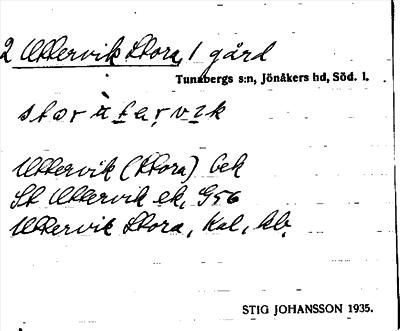 2 Uttervik Stora, 1 gård
Tunabergs s:n, Jönåkers hd, Söd. l.
Uttervik (Stora) bek
St Uttervik ek, G56
Uttervik Stora, Kal, kb.
STIG JOHANSSON 1935.